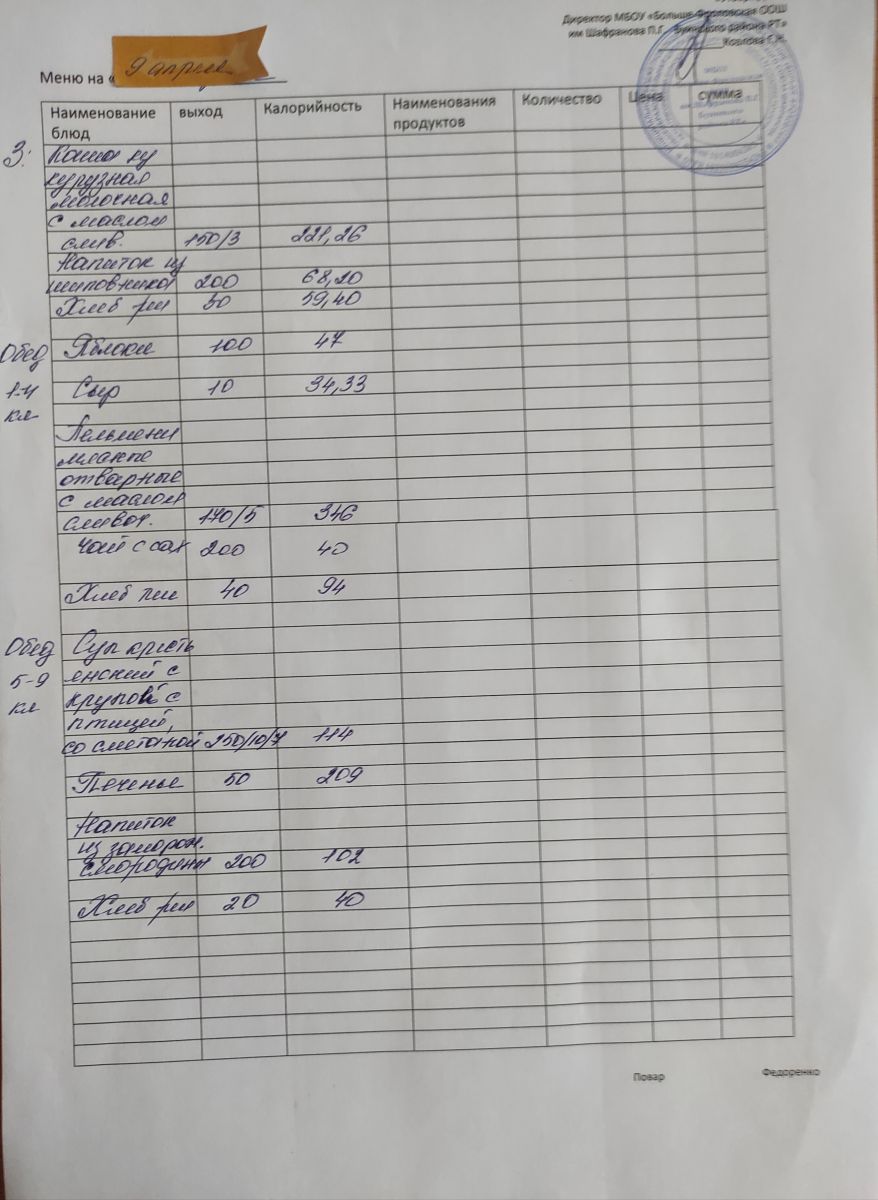 Директор МБОУ «Больше-Фроловская ООШ
им Шафранова П.Г. Буинского района РТ»
Козлова Г.Н.
Меню на « 9 апреля
Наименование блюд выход Калорийность Наименования продуктов Количество Цена сумма
З: Каша ку
курузная
молочная
с маслом
слив. 150/3 221,26
Напиток из
шиповника 200 68,20
Хлеб рж 30 59,40
Обед Яблоки 100 47
1-4 Сыр 10 34,33
кл
Пельмени
мясные
отварные
с маслом
сливоч. 170/5 346
Чай с сах 200 40
Хлеб пш 40 94
Обед Суп кресть
5-9 янский с
кл крупой с
птицей,
со сметаной 250/10/7 114
Печенье 50 209
Напиток
из заморож.
смородины 200 102
Хлеб рж 20 40
Повар Федоренко